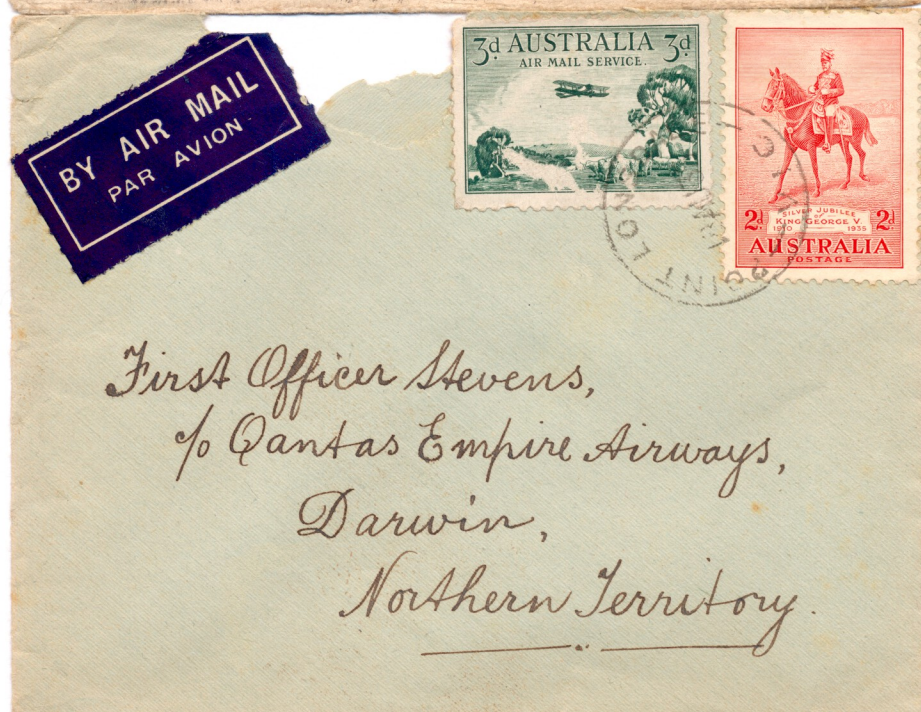 BY AIR MAIL
PAR AVION
3d AUSTRALIA 3d
AIR MAIL SERVICE.
2d SILVER JUBILEE 2d
OF
KING GEORGE V.
1910 1935
AUSTRALIA
POSTAGE
POINT LON
First Officer Stevens,
c/o Qantas Empire Airways,
Darwin,
Northern Territory.